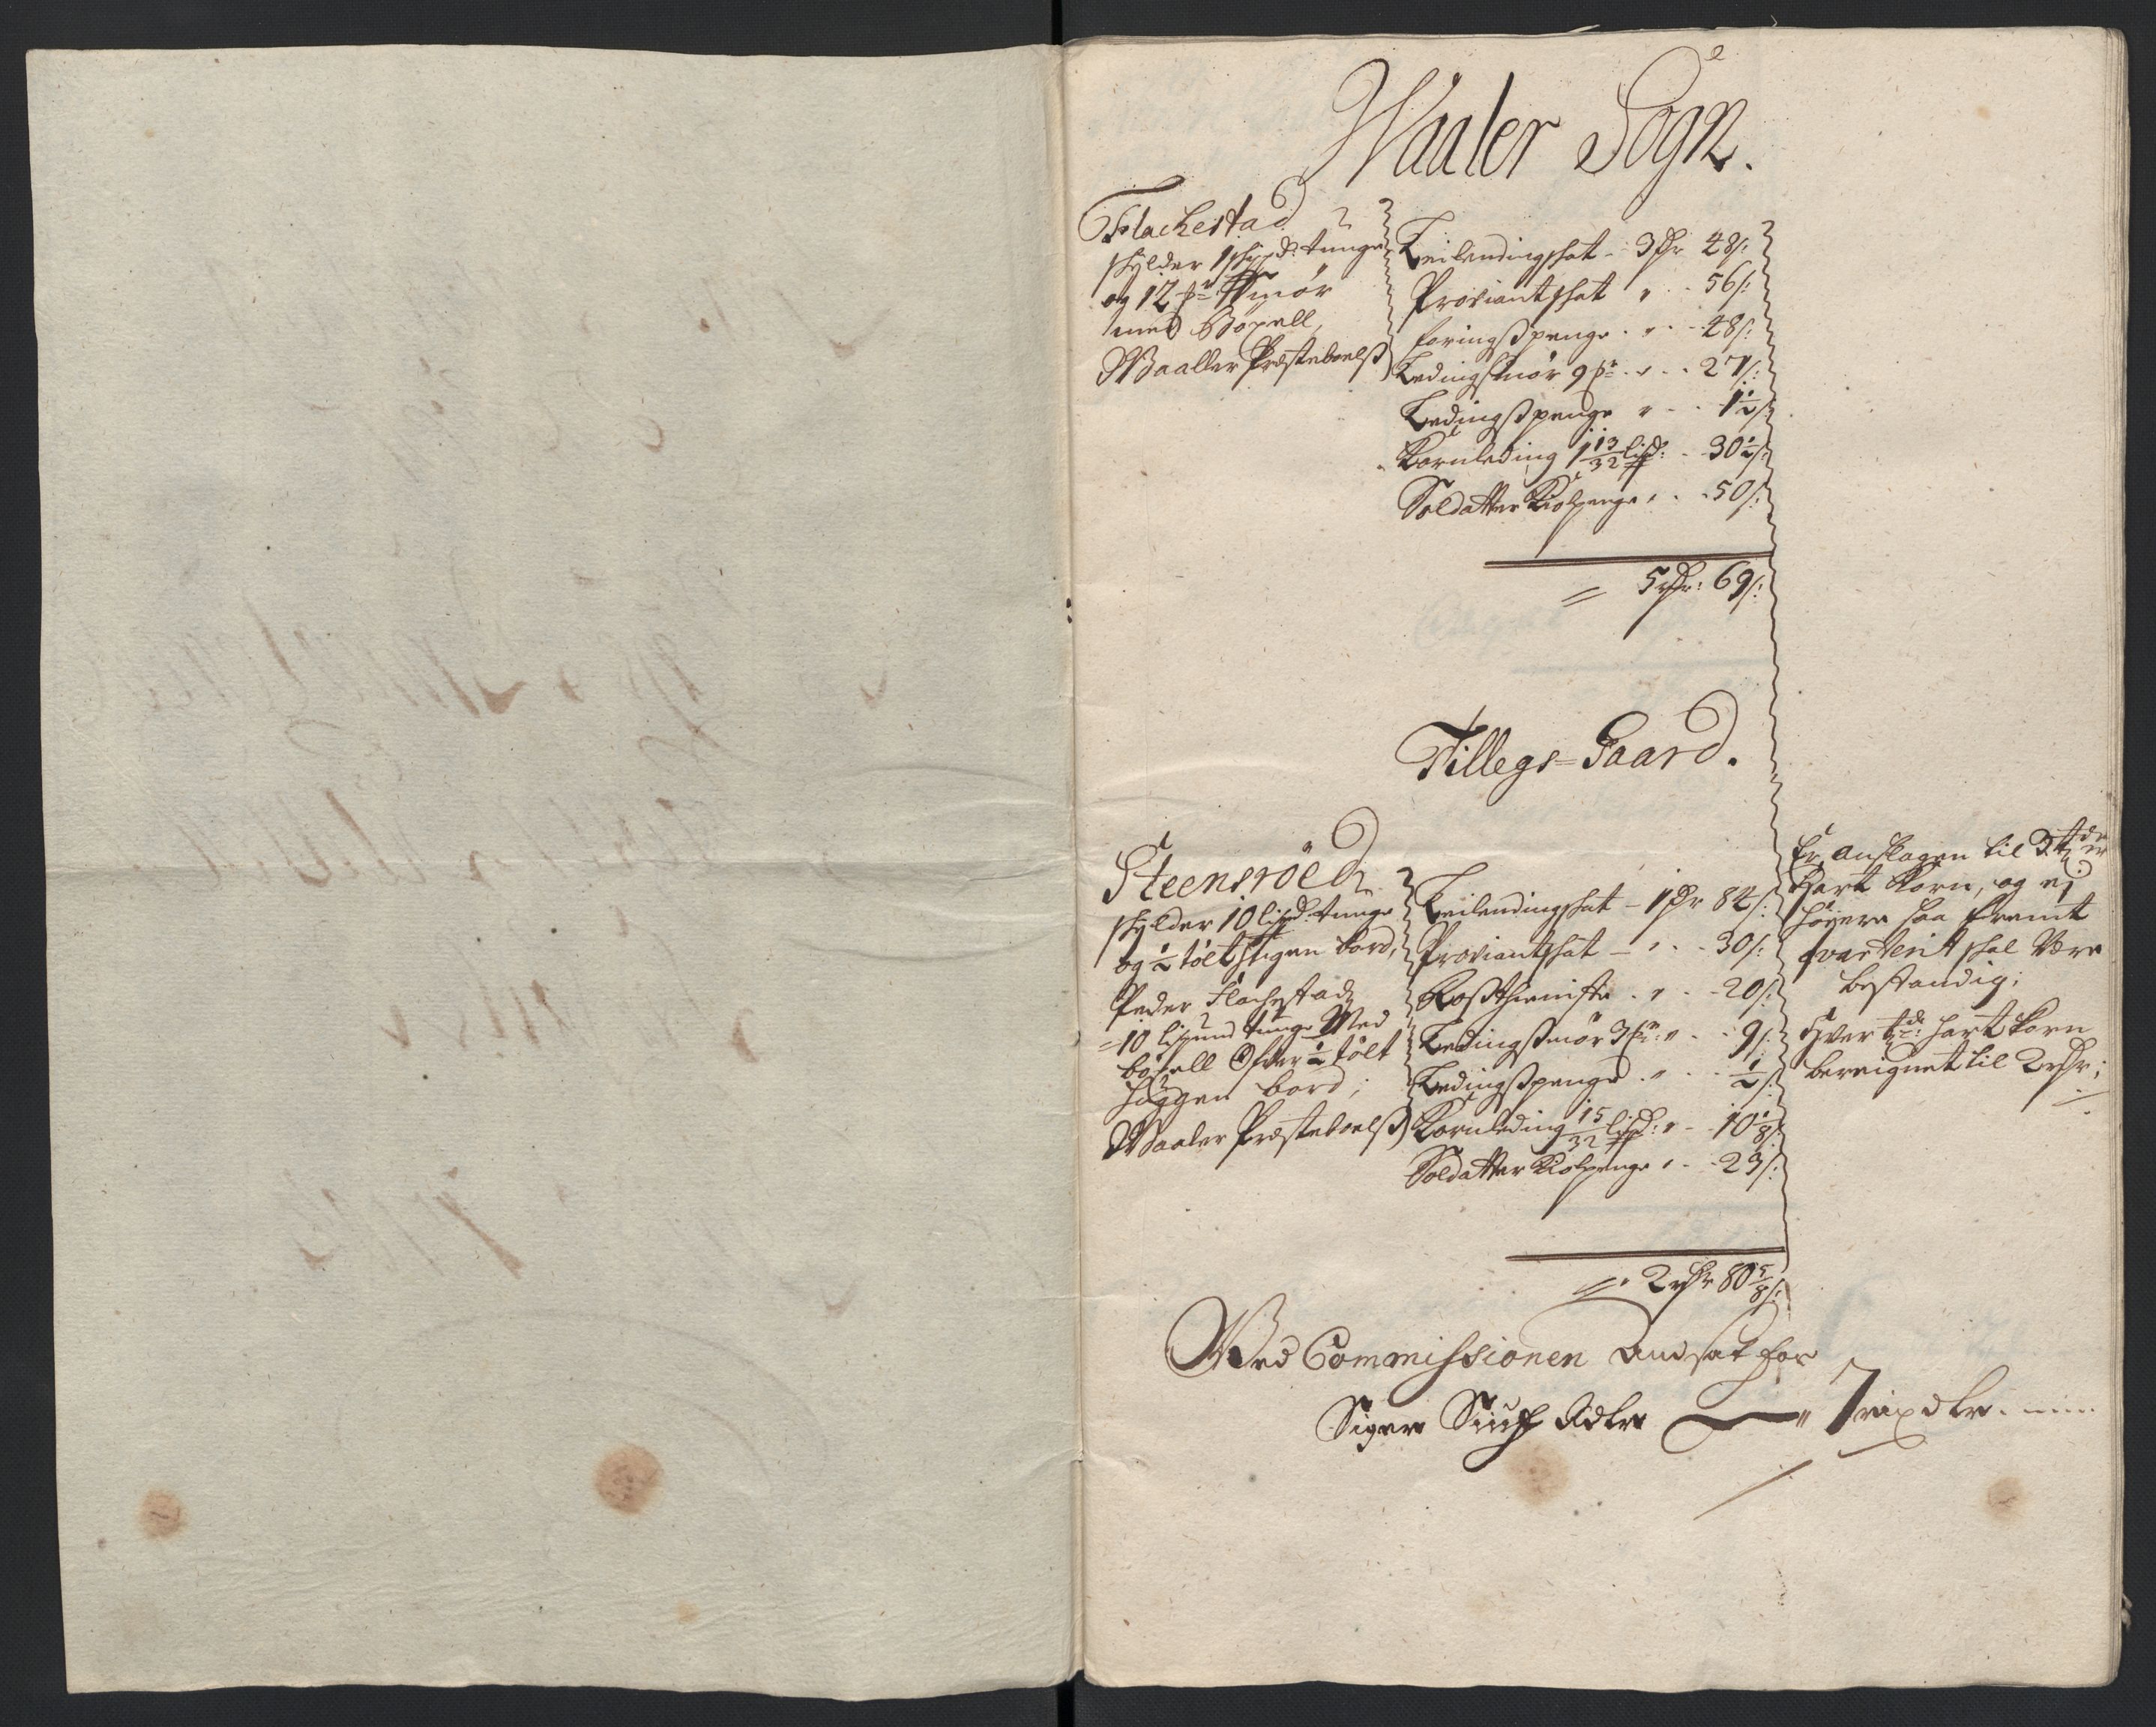 Waaler Sogn.
Flachestad
skylder 1 skipd: tunge
og 12 Smør
med Böxell,
Waaller Præsteboelß
Leilendingskat - 3 Dr 48 s:
Proviantskat " - 56 s:
foringspenge . " . - 48 s:
Ledingsmør 9 - 27 s:
Ledingspenge " - 1½ s:
Kornleding 1 13/32 lispd: - 30½ s:
Soldatter Kiolpenge " - 50 s:
= 5 rdr: 69 s:
Tillegs=Gaard.
Steensröed
skylder 10 lispd: tunge
og ½ tolt huggen bord,
Peder Flachestad
=10 lispund tunge Med
böxell Ofver ½ tolt
huggen bord;
Waaler Præsteboelß
Leilendingskat - 1 Dr 84 s:
Proviantskat - " - 30 s:
Roßthieniste . " - 20 s:
Ledingsmør 3 " - 9 s:
Ledingspenge . " - ½ s:
Kornleding 15/32 lispd: " - 10⅛ s:
Soldatter Kiolpenge " - 23 s:
= 2 rdr 80⅝ s:
Er anslagen til 3
Hart Korn, og ej
høyere saa fremt
qvarterit skal Være
bestandig;
Hver td: hart Korn
bereignet til 2 rdr;
Ved Commissionen Andsat for
Siger Siuf Adler " 7 rixdlr.